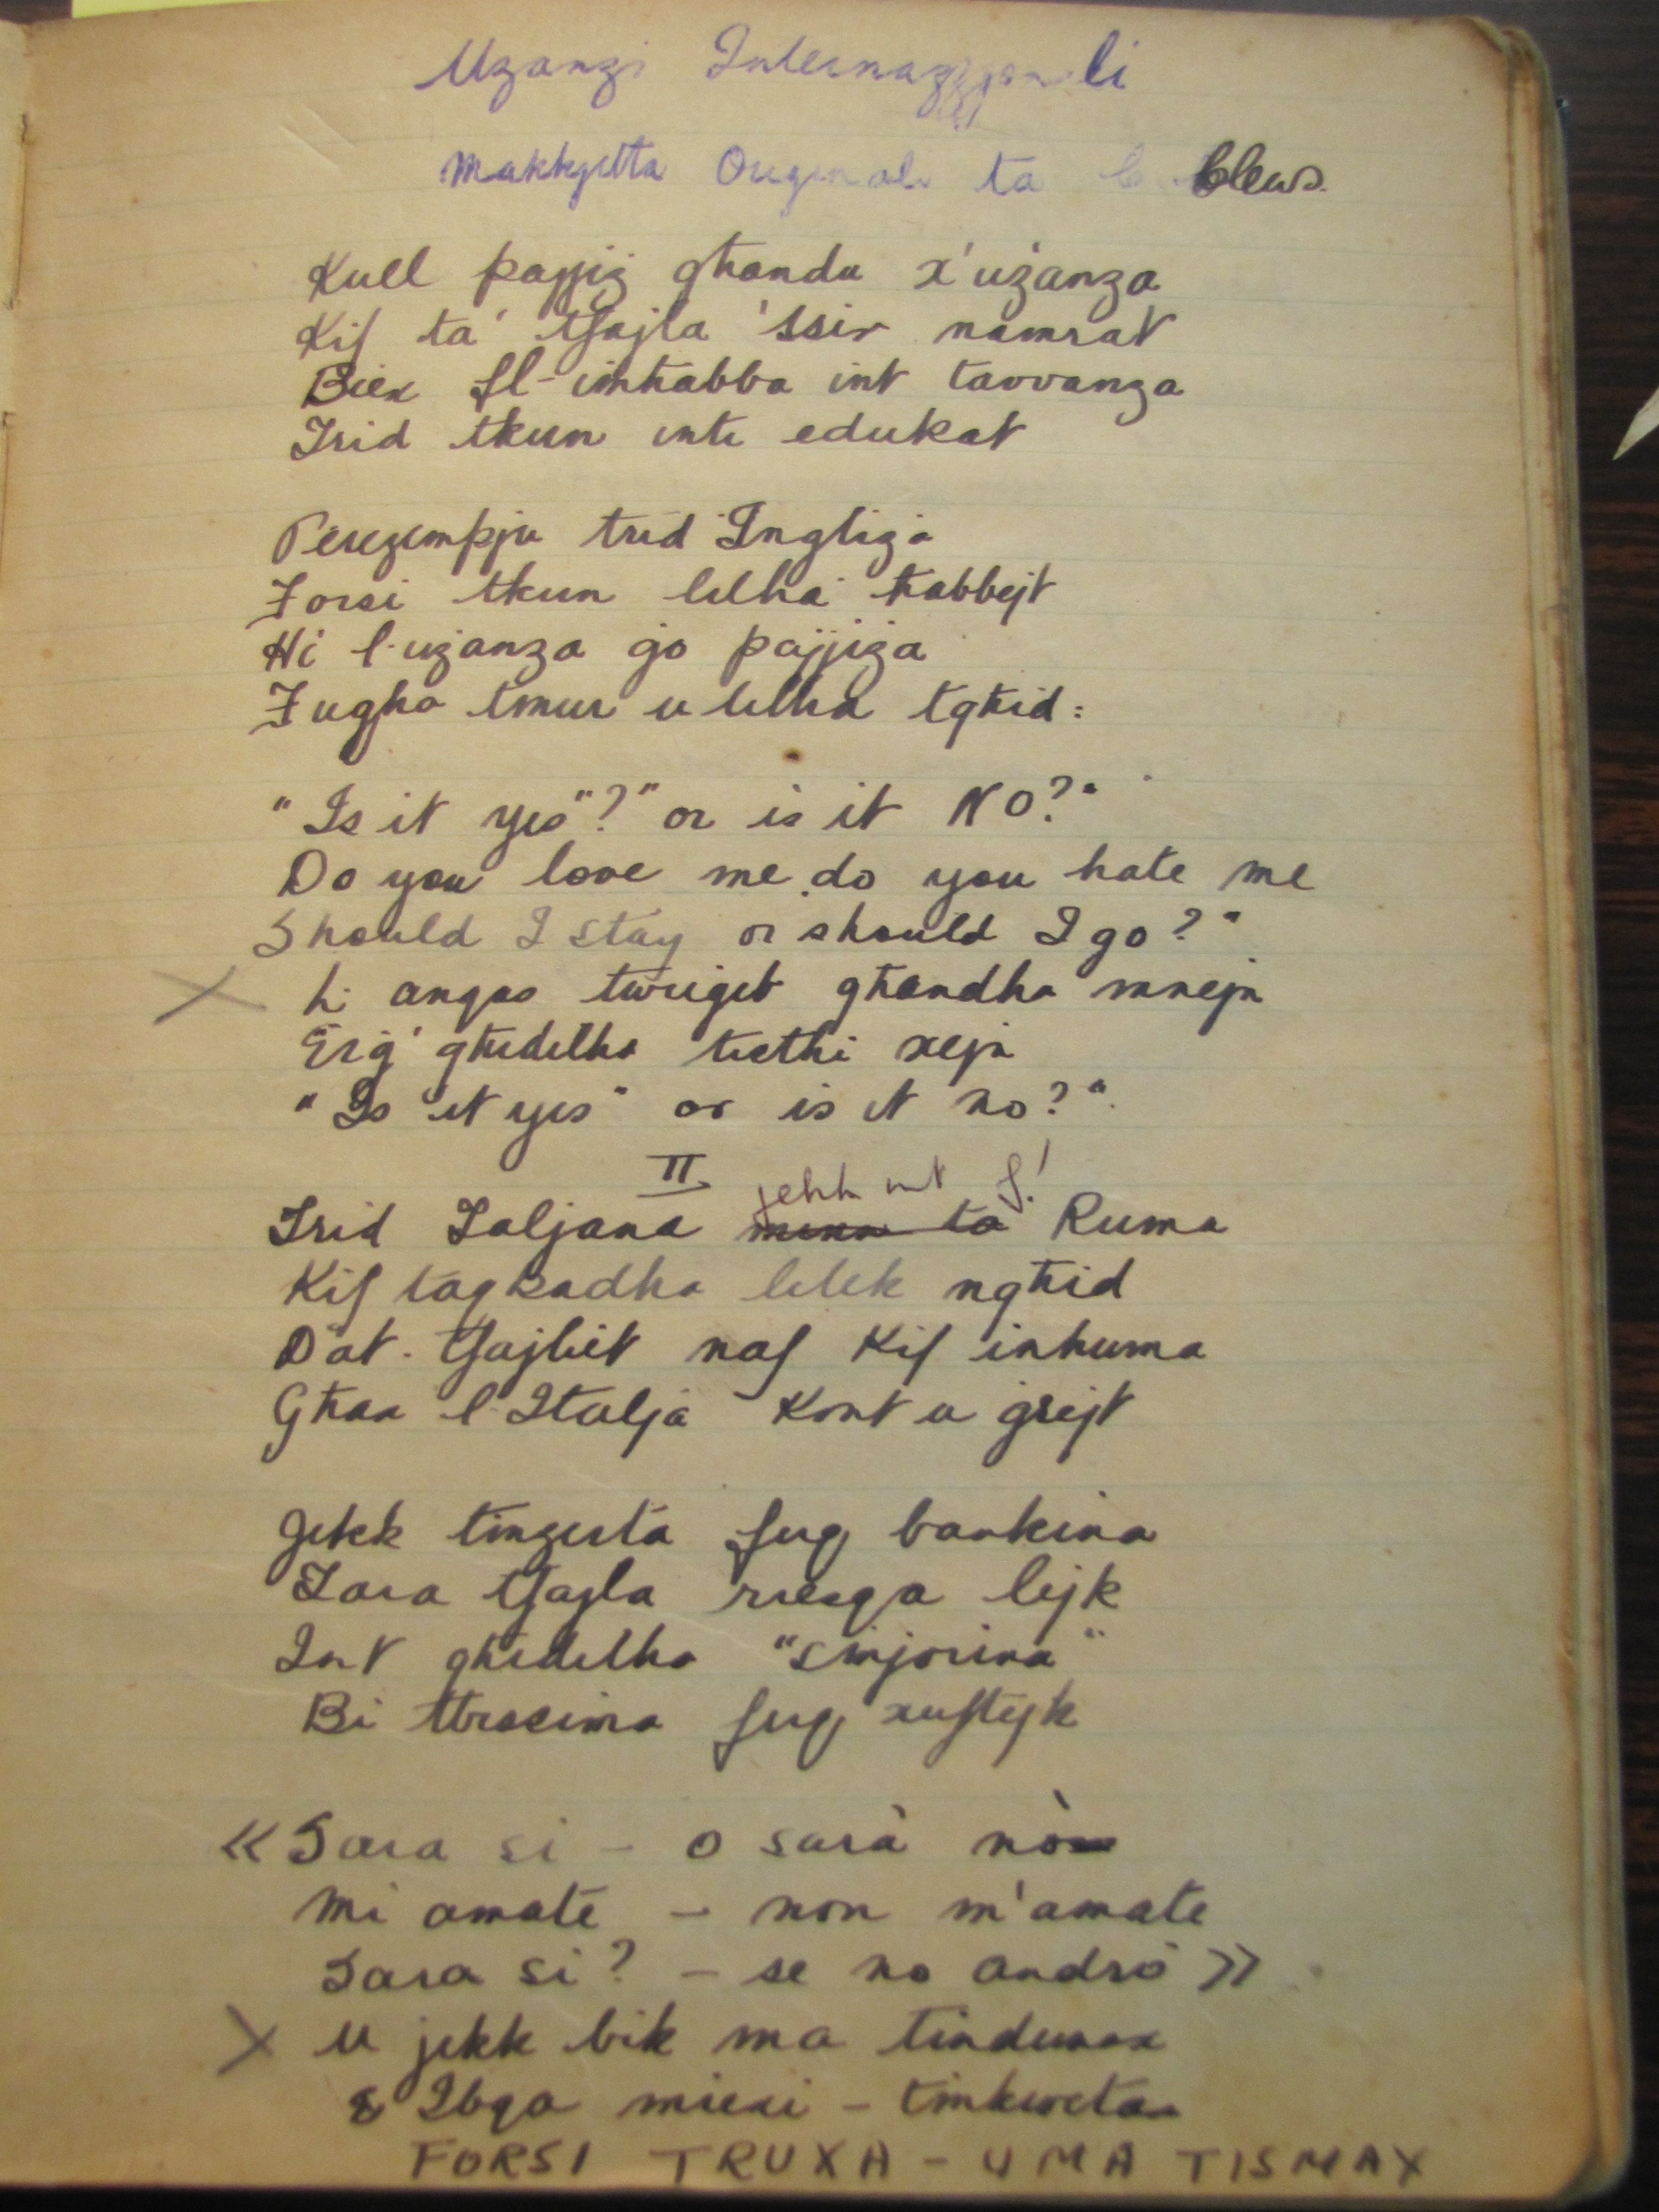 Użanzi Internazzjonali
Makkjetta Originali ta blews.
Kull pajjiż għandu x'użanza
Kif ta' tfajla 'ssir namrat
Biex fl-imħabba int tavvanza
Irid tkun inti edukat
Perezempju trid Ingliża
Forsi tkun lilha ħabbejt
Hi l-użanza ġo pajjiża
Fuqha tmur u lilha tgħid:
"Is it yes"?" or is it NO?"
Do you love me do you hate me
Should I stay or should I go?"
Li angas twieġeb għandha mnejn
Erġa' għidilha tieħi xejn
"Is it yes" or is it no?".
II
jekk int f'
Trid Taljana minn ta Ruma
Kif taqbadha lilek ngħid
Dat-tfajliet naf kif inhuma
Għax l-Italja kont u ġrejt
Jekk tinżerta fuq bankina
Tara tfajla riesqa lejk
Int għidilha "sinjorina"
Bi tbissima fuq xuftejk
«Sara si - o sarà nò
Mi amate - non m'amate
Sara si? - se no andrò»
U jekk bik ma tindunax
Ibqa miexi - tinkwetax
FORSI TRUXA - U MA TISMAX